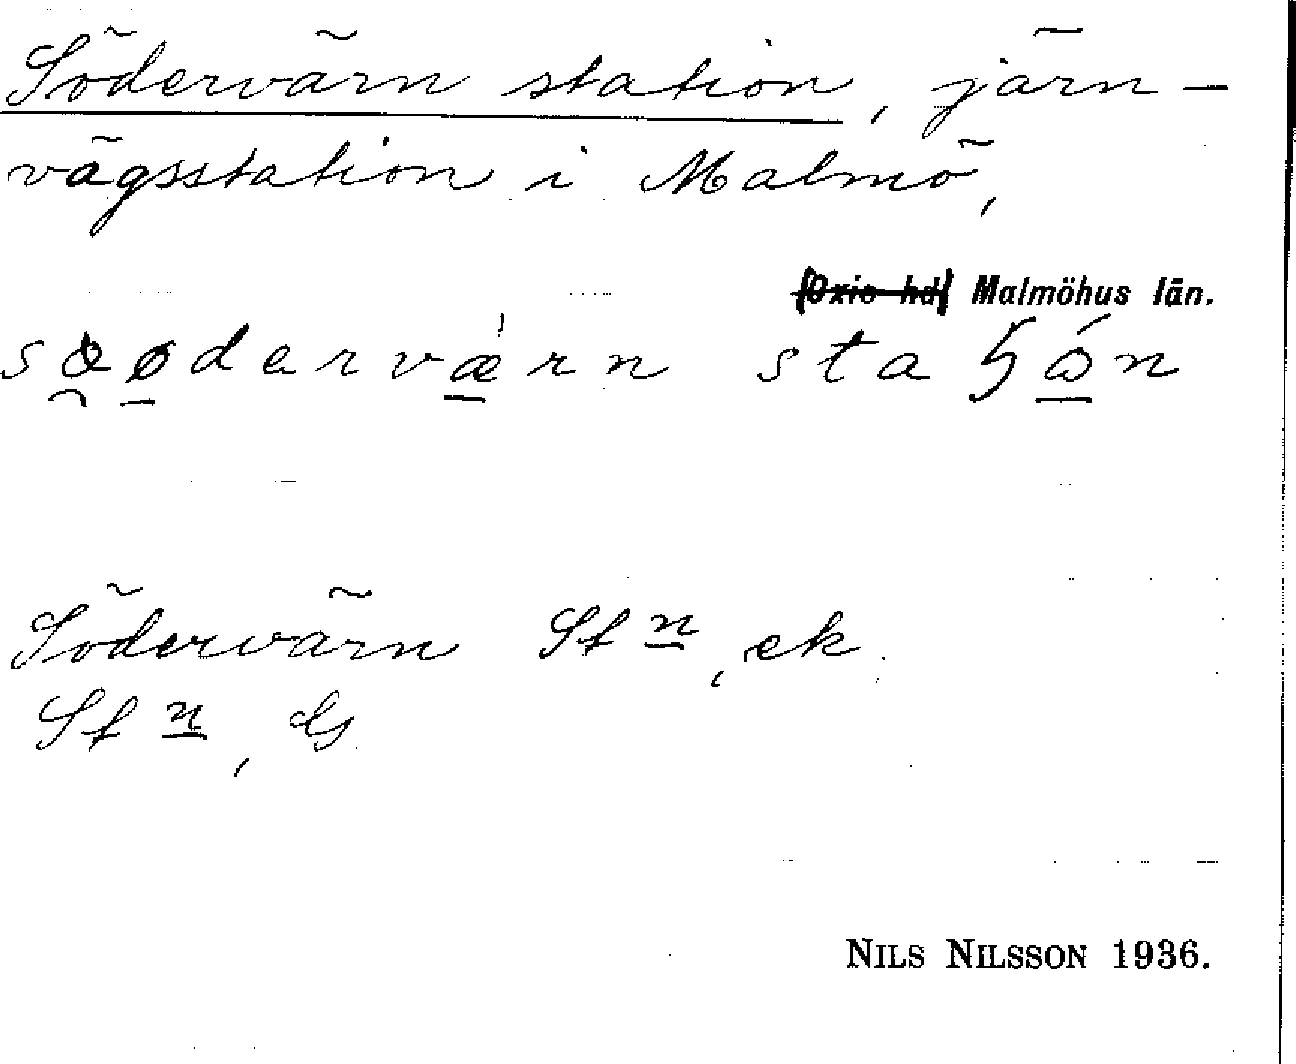 Södervärn station, järn-
vägsstation i Malmö,
(Oxie hd) Malmöhus län.
sœødervær̍n staɧón
Södervärn St n, ek.
St n, G
NILS NILSSON 1936.